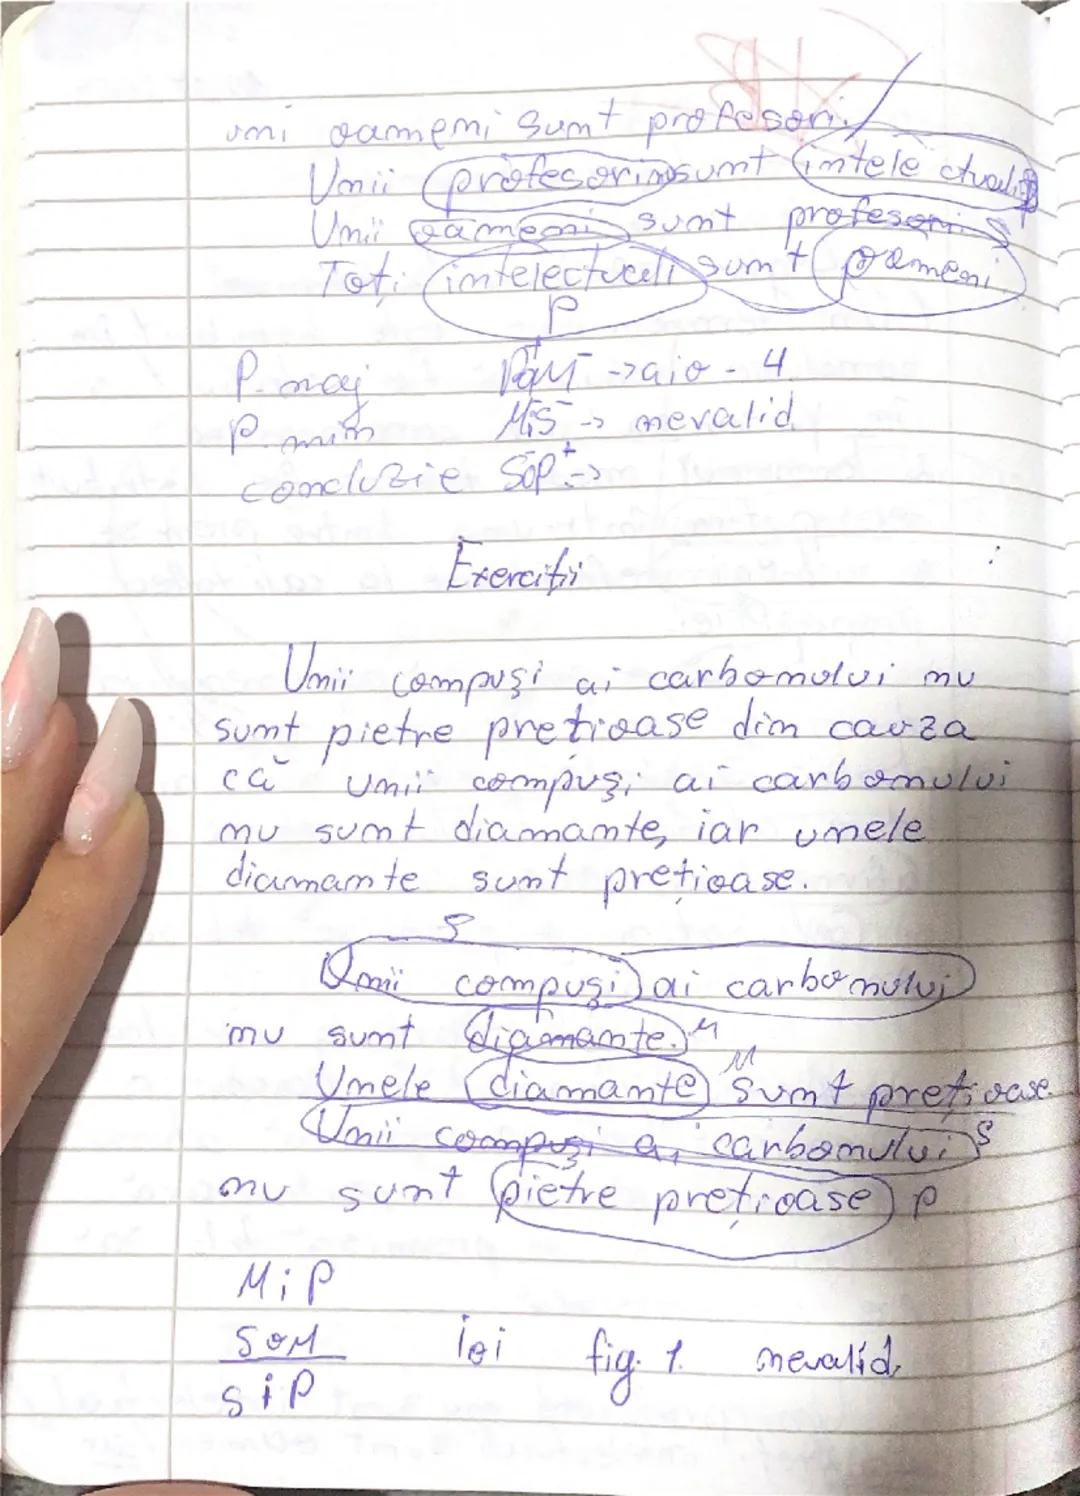 unii oameni sunt profesori.
Unii profesorii sunt intelectuali P
Unii oameni sunt profesori S
Toți intelectuali sunt oameni
P
P. maj PaM -> aio - 4
P. min MiS -> nevalid
concluzie SoP ->
Exerciții
Unii compuși ai carbonului nu
sunt pietre prețioase din cauza
că unii compuși ai carbonului
nu sunt diamante, iar unele
diamante sunt prețioase.
S
Unii compuși ai carbonului
nu sunt diamante. M
M
Unele diamante sunt prețioase.
Unii compuși ai carbonului S
nu sunt pietre prețioase P
MiP
SoM ioi fig. 1. nevalid
SiP